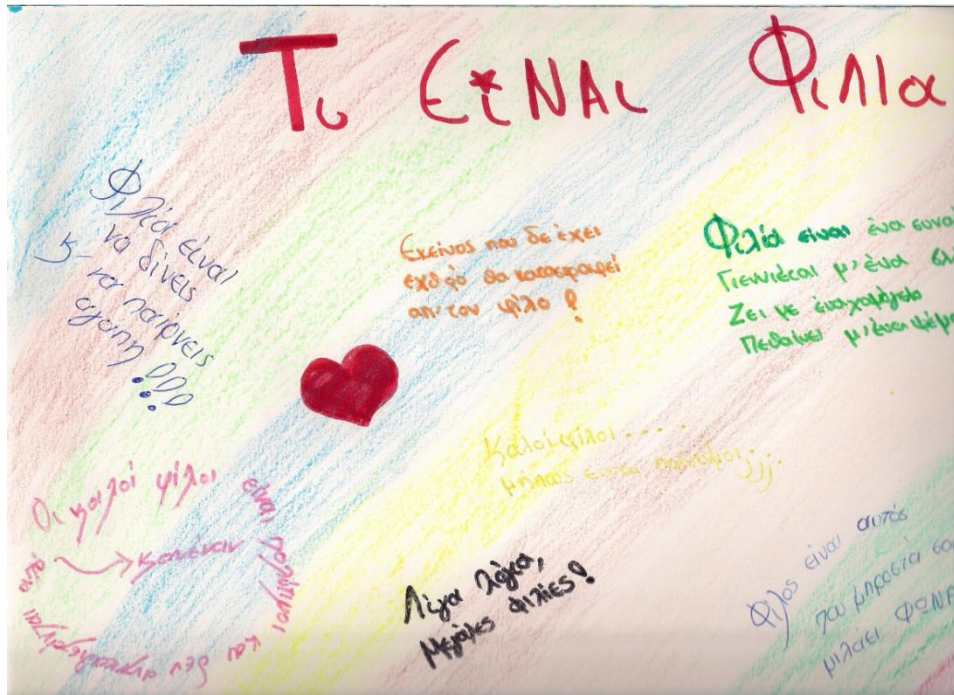 Τι είναι Φιλία
Φιλία είναι
να δίνεις
κ' να παίρνεις
αγάπη!!!
Εκείνος που δε έχει
εχθρό θα καταστραφεί
απ' τον φίλο!
Φιλία είναι ένα συνα
Γεννιέται μ' ένα
Ζει με ένα χαμόγελο
Πεθαίνει μ' ένα ψέμ
Καλοί φίλοι....
μήπως είναι
Οι καλοί φίλοι
είναι πολύτιμοι και δεν
από
κανέναν
Λίγα λόγια,
Μεγάλες φιλίες!
Φίλος είναι αυτός
που μπροστά σο
μιλάει ΦΩΝΑ